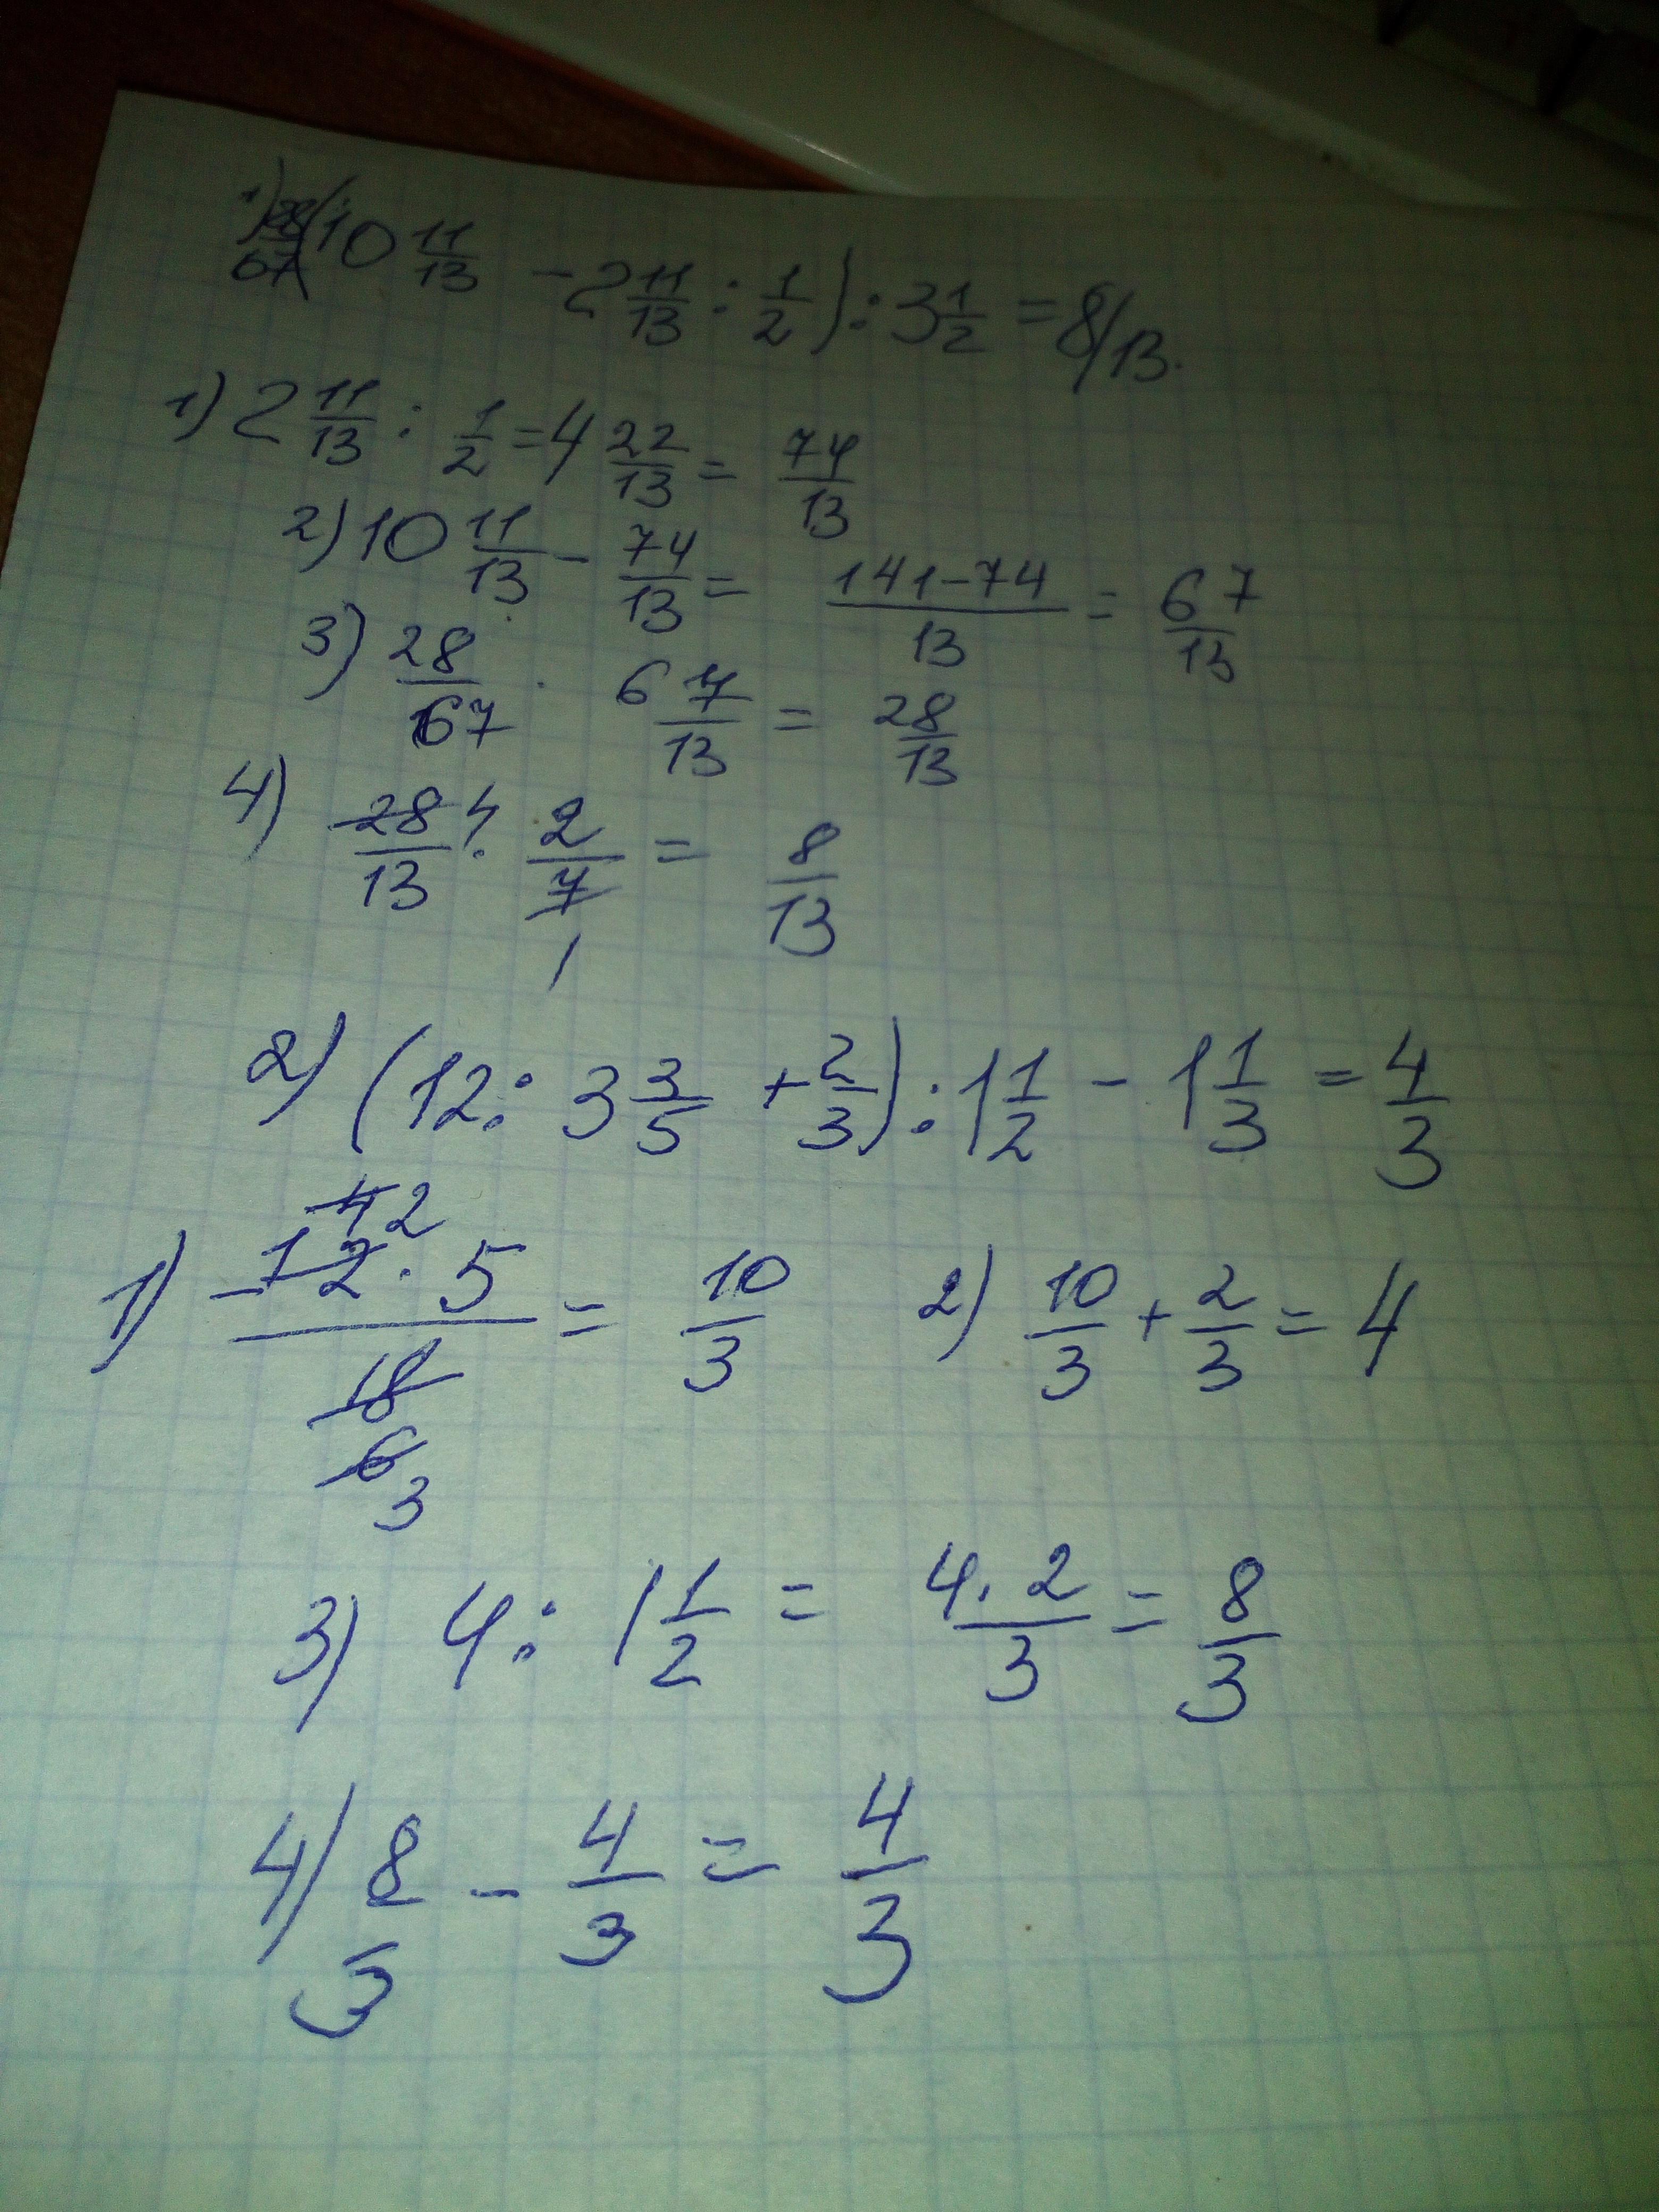 1) 28/67 (10 11/13 - 2 11/13 : 1/2) : 3 1/2 = 8/13.
1) 2 11/13 : 1/2 = 4 22/13 = 74/13
2) 10 11/13 - 74/13 = (141-74)/13 = 67/13
3) 28/67 · 67/13 = 28/13
4) 28 4/13 · 2/7 1 = 8/13
2) (12 : 3 3/5 + 2/3) : 1 1/2 - 1 1/3 = 4/3
1) 12 4 2 · 5 / 18 6 3 = 10/3 2) 10/3 + 2/3 = 4
3) 4 : 1 1/2 = 4·2/3 = 8/3
4) 8/3 - 4/3 = 4/3